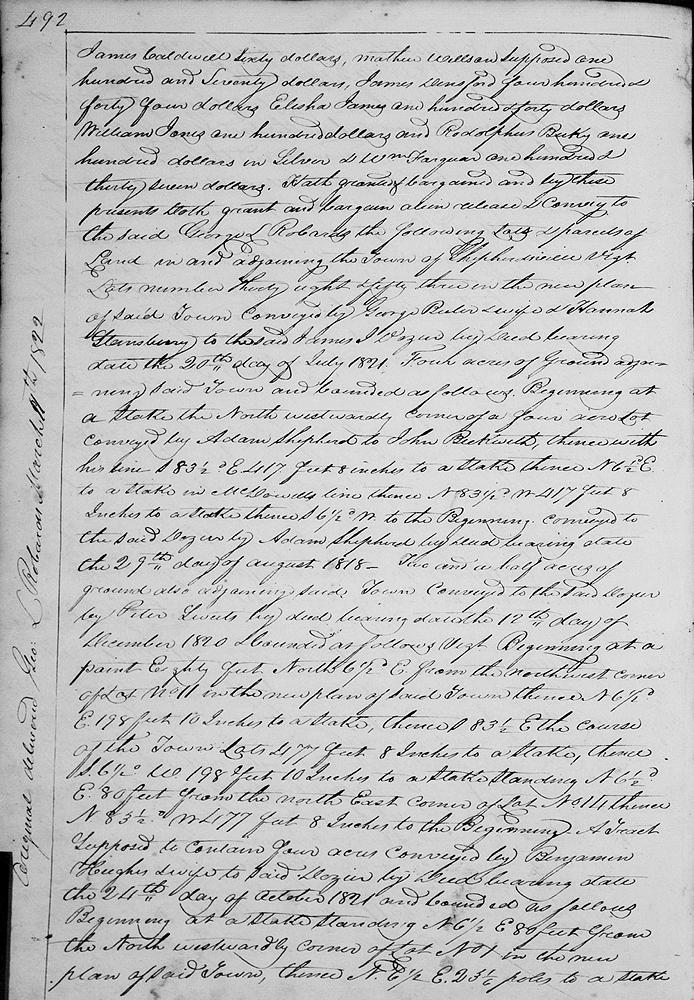 492
James Caldwell Sixty dollars, Mathew Willson Supposed one
hundred and Seventy dollars, James Dunsford four hundred &
forty four dollars Elisha James one hundred & forty dollars
William Jones one hundred dollars and Rodolphus one
hundred dollars in Silver & Wm Farquar one hundred &
thirty Seven dollars. Hath granted & bargained and by these
presents Doth grant and bargain alien release & Convey to
the said George L Roberts the following Lots & parcels of
Land in and adjoining the Town of Shepherdsville Vizt
Lots number Thirty eight & fifty three in the new plan
of Said Town Conveyed by George wife & Hannah
Stansbury to the said James J Dozier by Deed bearing
date the 20th day of July 1821. Four acres of Ground adjoi-
=ning Said Town and bounded as follows. Beginning at
a Stake the North westwardly Corner of a four acre Lot
Conveyed by Adam Shepherd to John Beckwith thence with
his line S 83½° E 417 feet 8 inches to a Stake thence N 6½° E.
to a Stake in McDowells line thence N 83½° W 417 feet 8
Inches to a Stake thence S 6½° W. to the Beginning. Conveyed to
the said Dozier by Adam Shepherd by Deed bearing date
the 29th day of august 1818 - Two and a half acres of
ground also adjoining said Town Conveyed to the said Dozier
by Peter by deed bearing date the 12th day of
December 1820 & bounded as follows Vizt Beginning at a
point Eighty feet North 6½° E. from the northwest corner
of Lot No 11 in the new plan of Said Town thence N 6½°
E. 198 feet 10 Inches to a Stake, thence S 83½ E the course
of the Town Lots 477 feet 8 Inches to a Stake, thence
S. 6½° W. 198 feet 10 Inches to a Stake Standing N 6½°
E. 80 feet from the north East Corner of Lot No 14 thence
N 83½° W 477 feet 8 Inches to the Beginning. A Tract
Supposed to Contain four acres Conveyed by Benjamin
Hughes & wife to said Dozier by Deed bearing date
the 24th day of October 1821 and bounded as follows
Beginning at a Stake Standing N 6½ E 80 feet from
the North westwardly corner of Lot No 1 in the new
plan of said Town, thence N. 6½ E. 23½ poles to a Stake
Original delivered Geo: L Robarson March 11th 1822